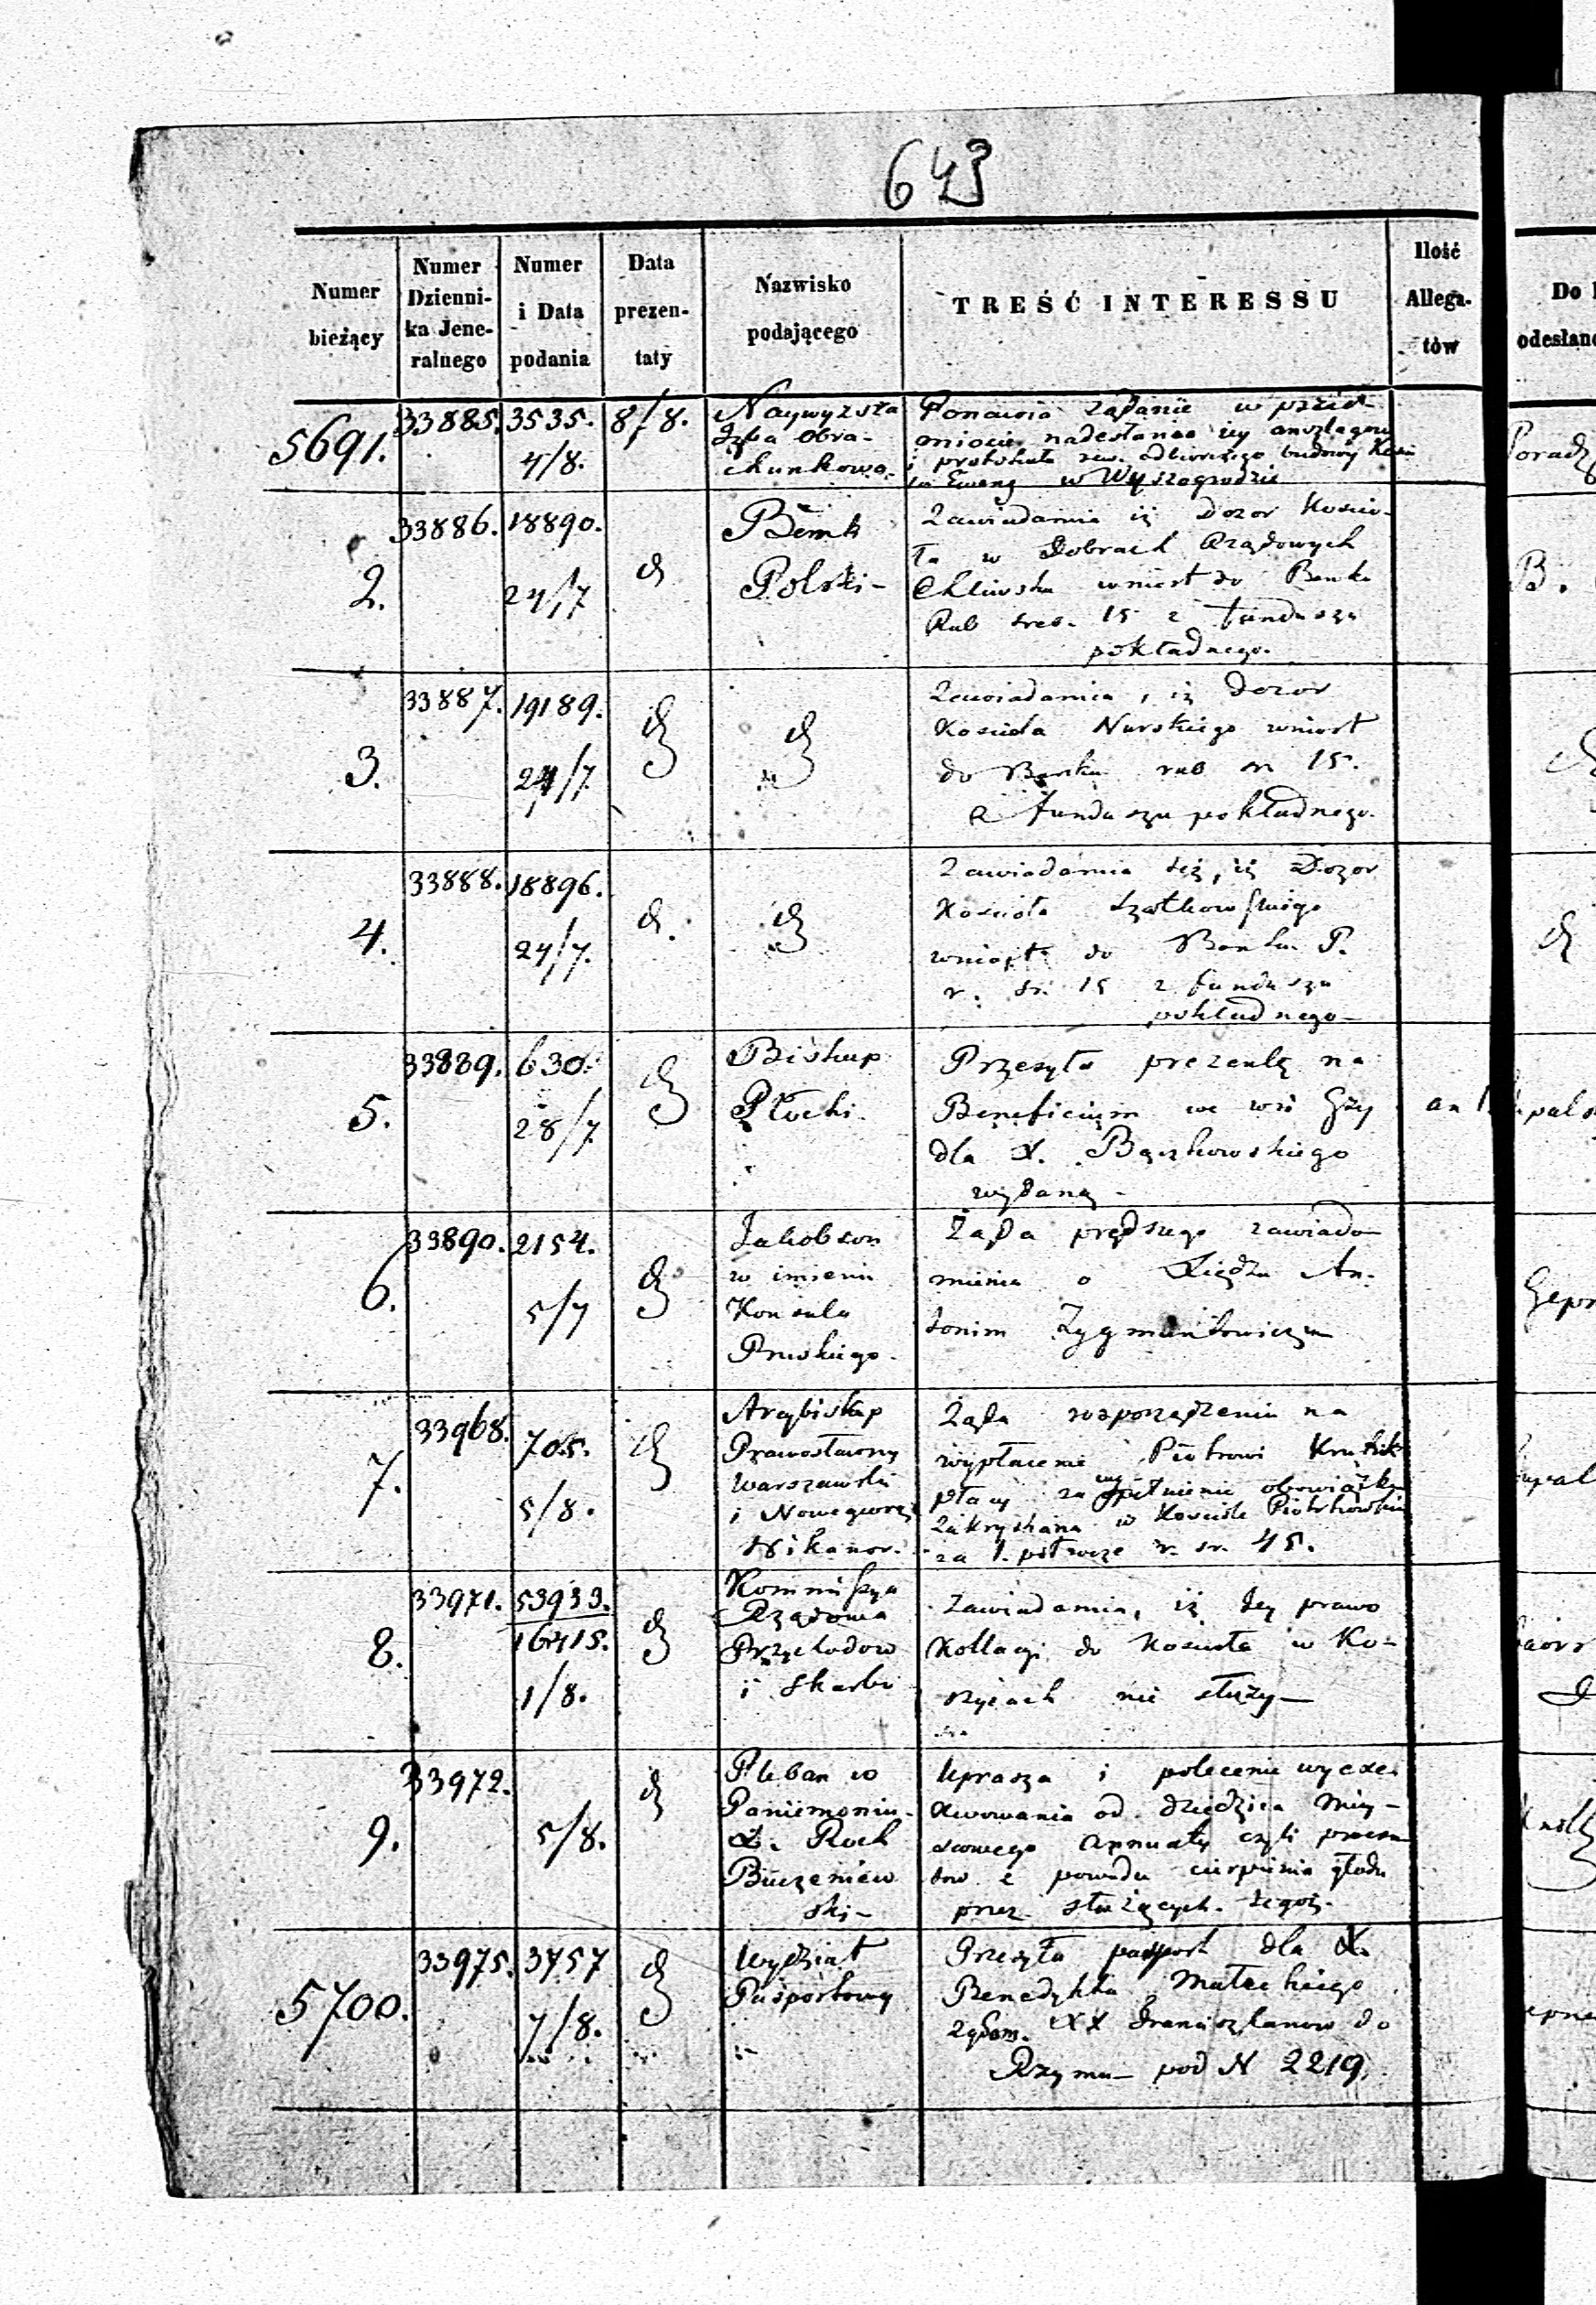 643
Numer bieżący
Numer Dzienni-
ka Jene-
ralnego
Numer
i Data
podania
Data
prezen-
taty
Nazwisko
podającego
TREŚĆ INTERESSU
Ilość
Allega-
tów
Do
odesłano
5691.
33885.
3535.
4/8.
8/8.
Naywyzsza
Izba Obra-
chunkowa.
Ponawia żądanie w przed-
miocie nadesłania jey anszlagow
i protokułu rew. odbiorczego budowy
Ewang w Wyszogrodzie
2.
33886.
18890.
24/7
d
Bank
Polski-
Zawiadamia iż Dozor Kościo-
ła w Dobrach Rządowych
wniosł do Banku
Rub sreb. 15 z funduszu
pokładnego.
B.
3.
33887.
19189.
24/7
d
d
Zawiadamia, iż Dozor
Kościoła Nurskiego wniosł
do Banku rub sr. 15.
z funduszu pokładnego.
4.
33888.
18896.
24/7.
d.
d
Zawiadamia się, iż Dozor
Kościoła
wniosł do Banku P.
r. sr. 15 z funduszu
pokładnego-
d
5.
33889.
630.
28/7
d
Biskup
Płocki.
Przesyła prezentę na
Beneficium we wsi Gzy
dla X. Bączkowskiego
wydaną-
an 1.
6.
33890.
2154.
5/7
d
Jakobson
w imieniu
Konsula
Pruskiego.
Żąda prędszego zawiado-
mienia o Xiędzu An-
tonim Zygmuntowiczu
7.
33968.
705.
5/8.
d
Arcybiskup
Prawosławny
Warszawski
i Nowogeorg.
Nikanor.
Żąda rozporządzenia na
wypłacenie Piotrowi
płacy za wypełnienie obowiązku
Zakrystiana w Kościele Piotrkowskim
za 1. półrocze r. sr. 45.
8.
33971.
53933.
16415.
1/8.
d
Kommissya
Rządowa
Przychodow
i Skarbu
Zawiadamia, iż Jey prawo
Kollacyi do Kościoła w Ko-
szycach nie służy-
9.
33972.
5/8.
d
Pleban w
Paniemoniu-
X. Roch
Buczeniew
ski-
Uprasza i polecenie wyexe-
kwowania od dziedzica miey-
scowego annuaty czyli procen-
tow z powodu cierpienia głodu
przez służących tegoż.
5700.
33975.
3757
7/8.
d
Wydział
Pasportowy
Przesyła passport dla X.
Benedykta Małeckiego
zgrom. XX Franciszkanow do
Rzymu- pod N 2219.